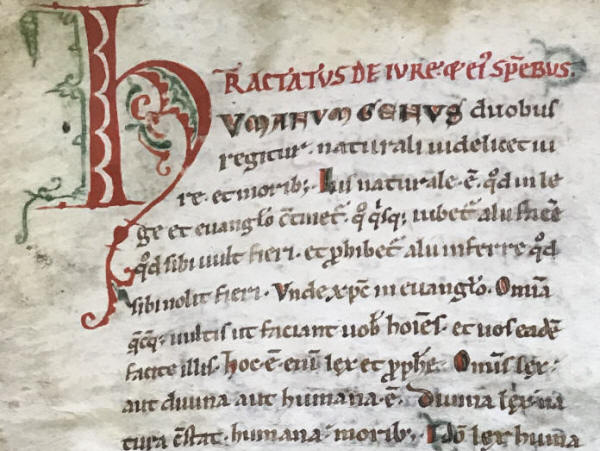 TRACTATUS DE IURE ⁊ EIꝰ SPĒBUS.
HUMANUM GENUS duobus
regitur. naturali uidelicet iu
re. et moribꝫ. Ius naturale .ē. qđ in le
ge et euanglo ꝯtinet̄. qͦ qͥsqꝫ iubet̄ alii facē
qđ sibi uult fieri. et ꝓhibet̄ alii inferre qđ
sibi nolit fieri. Vnde xp̄c in euanglo. Omīa
q̄cūqꝫ uultis ut faciant uob̄ hoiēs. et uos eadē
facite illis. hoc .ē. enī lex et ꝓph̄e. Omīs lex.
aut diuina aut humana .ē. Diuina lex na
tura ꝯ̄stat. humana moribꝫ. Idō lex huma